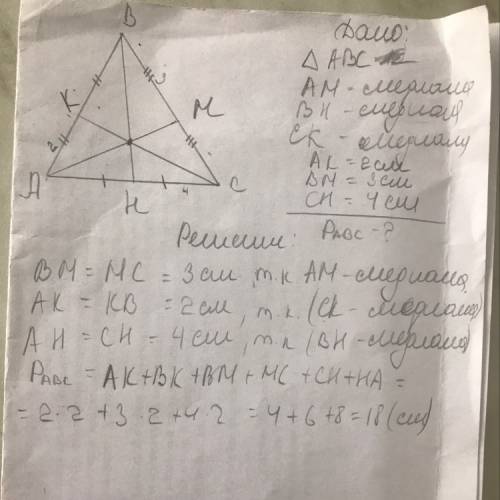 Дано:
△ ABC
AM - медиана
BH - медиана
CK - медиана
AK = 2 см
BM = 3 см
CH = 4 см
PABC - ?
B
K
3
M
2
A
H
4
C
Решение:
BM = MC = 3 см, т.к AM - медиана
AK = KB = 2 см, т.к. (CK - медиана)
AH = CH = 4 см, т.к (BH - медиана)
PABC = AK+BK+BM+MC+CH+HA =
= 2·2 + 3·2 + 4·2 = 4+6+8 = 18 (см)